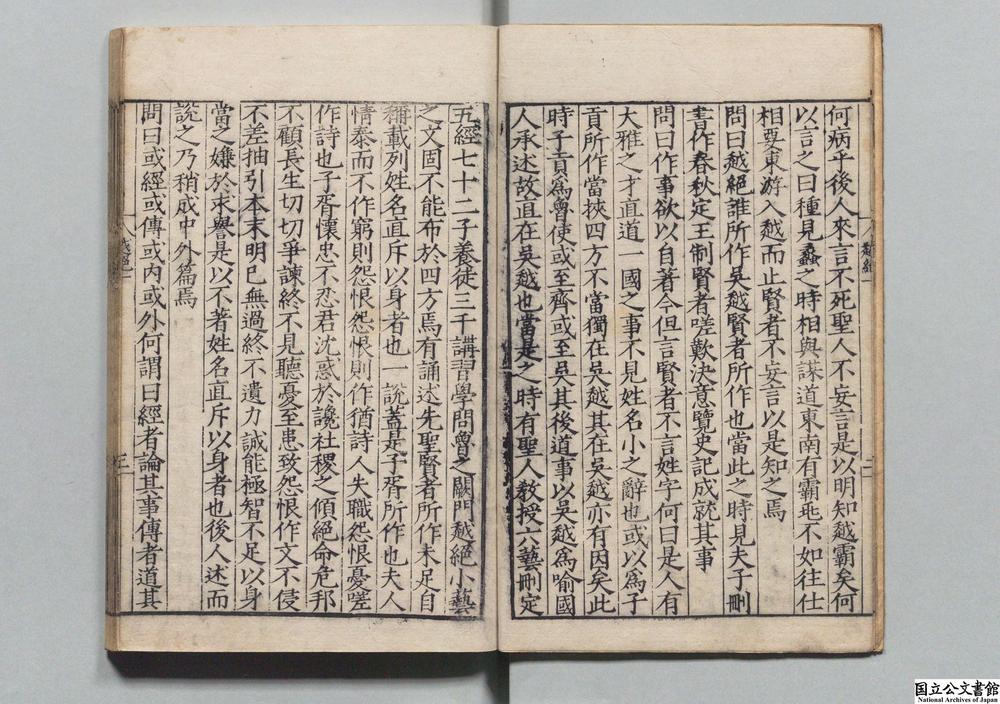 何病乎後人來言不死聖人不妄言是以明知越霸矣何
以言之曰種見蠡之時相與謀道東南有霸兆不如往仕
相要東游入越而止賢者不妄言以是知之焉
問曰越絕誰所作吳越賢者所作也當此之時見夫子刪
書作春秋定王制賢者嗟歎決意覽史記成就其事
問曰作事欲以自著今但言賢者不言姓字何曰是人有
大雅之才直道一國之事不見姓名小之辭也或以爲子
貢所作當挾四方不當獨在吳越其在吳越亦有因矣此
時子貢爲魯使或至齊或至吳其後道事以吳越爲喻國
人承述故直在吳越也當是之時有聖人敎授六藝刪定
五經七十二子養徒三千講習學問魯之闕門越絕小藝
之文固不能布於四方焉有誦述先聖賢者所作未足自
稱載列姓名直斥以身者也一說蓋是子胥所作也夫人
情泰而不作窮則怨恨怨恨則作猶詩人失職怨恨憂嗟
作詩也子胥懷忠不忍君沈惑於讒社稷之傾絕命危邦
不顧長生切切爭諫終不見聽憂至患致怨恨作文不侵
不差抽引本末明已無過終不遺力誠能極智不足以身
當之嫌於求譽是以不著姓名直斥以身者也後人述而
說之乃稍成中外篇焉
問曰或經或傳或內或外何謂曰經者論其事傳者道其
越絕一
二
越絕一
三
国立公文書館
National Archives of Japan